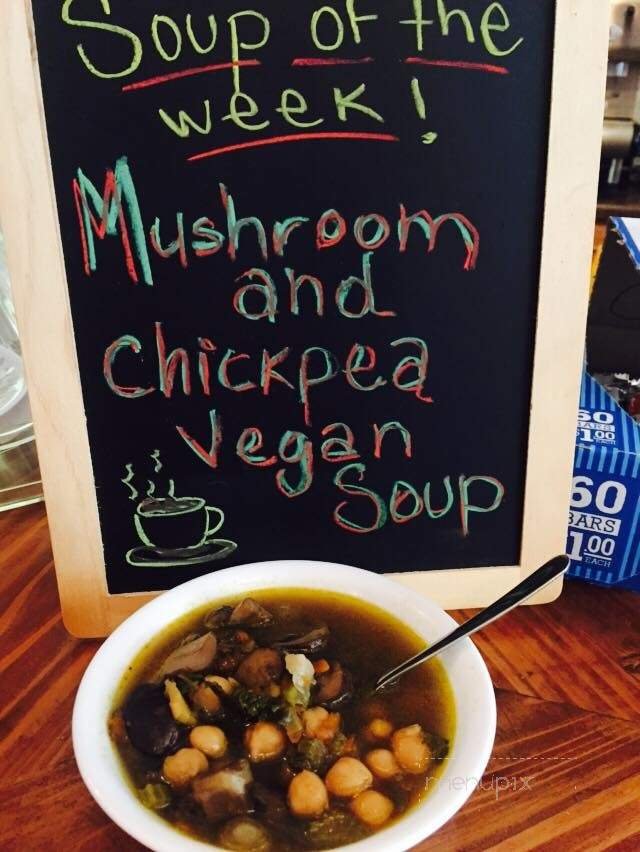 Soup of the
week!
Mushroom
and
Chickpea
Vegan
Soup
50
BARS
$1.00
EACH
60
BARS
1.00
EACH
menupix